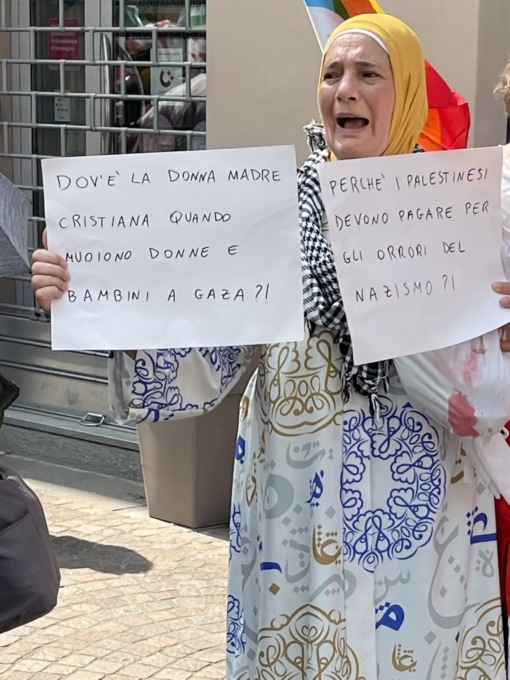 DOV'È LA DONNA MADRE
CRISTIANA QUANDO
MUOIONO DONNE E
BAMBINI A GAZA?!
PERCHÈ I PALESTINESI
DEVONO PAGARE PER
GLI ORRORI DEL
NAZISMO?!